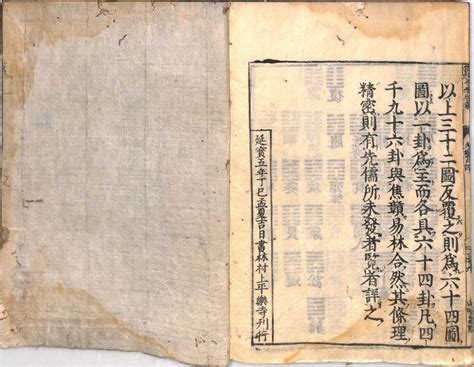 以上三十二圖反覆之則爲六十四圖
圖以一卦爲主而各具六十四卦凡四
千九十六卦與焦贛易林合然其條理
精密則有先儒所未發者覽者詳之
延寳五年丁巳孟夏吉日書林村上平樂寺刊行